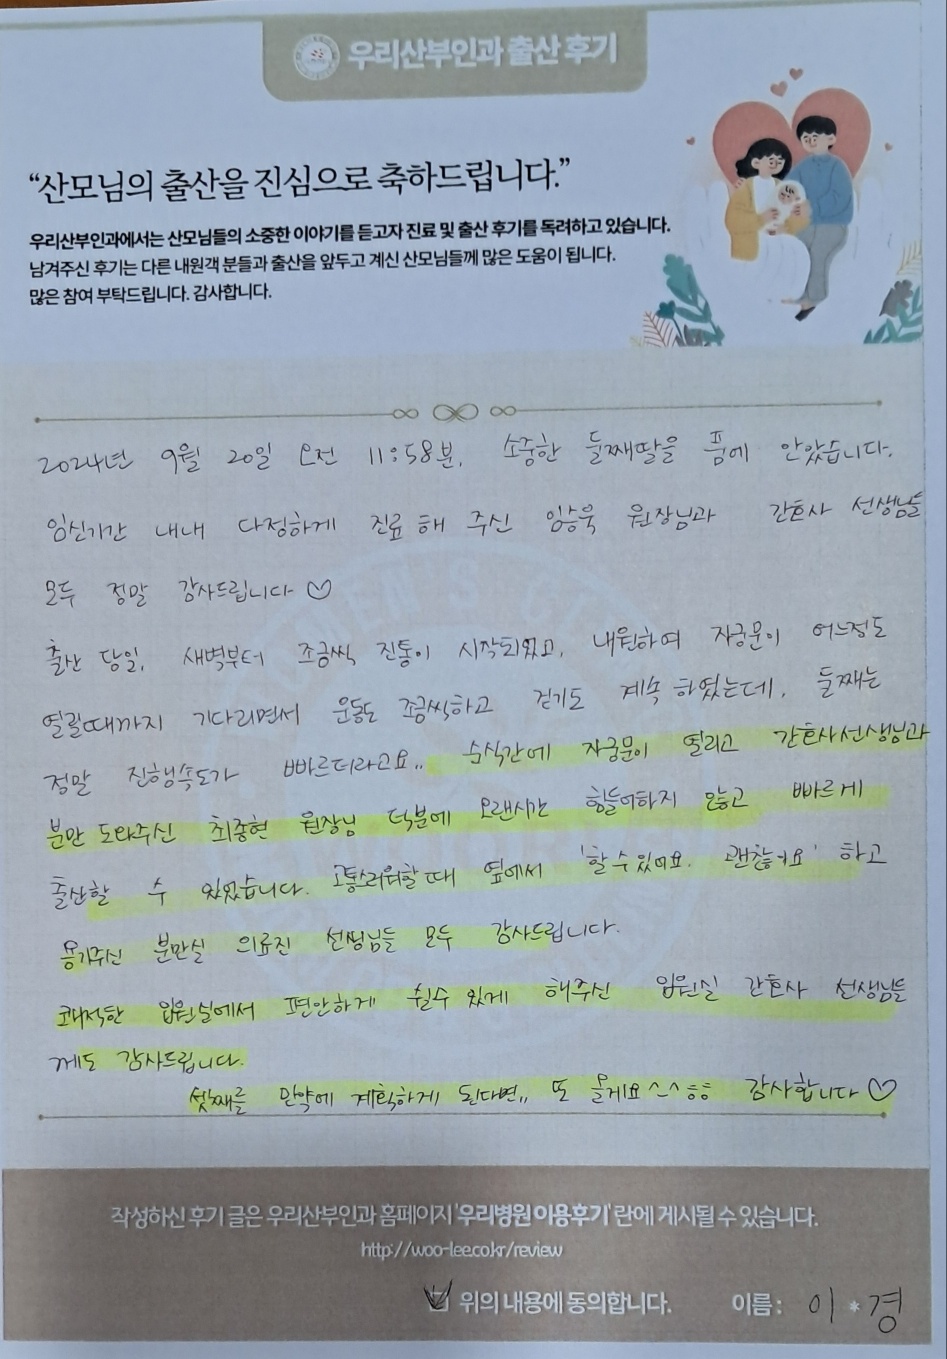 우리산부인과 출산 후기
“산모님의 출산을 진심으로 축하드립니다.”
우리산부인과에서는 산모님들의 소중한 이야기를 듣고자 진료 및 출산 후기를 독려하고 있습니다.
남겨주신 후기는 다른 내원객 분들과 출산을 앞두고 계신 산모님들께 많은 도움이 됩니다.
많은 참여 부탁드립니다. 감사합니다.
2024년 9월 20일 오전 11:58분, 소중한 둘째딸을 품에 안았습니다.
임신기간 내내 다정하게 진료 해 주신 임승욱 원장님과 간호사 선생님들
모두 정말 감사드립니다♡
출산 당일, 새벽부터 조금씩 진통이 시작되었고, 내원하여 자궁문이 어느정도
열릴때까지 기다리면서 운동도 조금씩하고 걷기도 계속 하였는데, 둘째는
정말 진행속도가 빠르더라고요,, 순식간에 자궁문이 열리고 간호사선생님과
분만 도와주신 최중현 원장님 덕분에 오랜시간 힘들어하지 않고 빠르게
출산할 수 있었습니다. 고통스러워할때 옆에서 '할수있어요. 괜찮아요' 하고
용기주신 분만실 의료진 선생님들 모두 감사드립니다.
쾌적한 입원실에서 편안하게 쉴수 있게 해주신 입원실 간호사 선생님들
께도 감사드립니다.
셋째를 만약에 계획하게 된다면,, 또 올게요^^ㅎㅎ 감사합니다♡
작성하신 후기 글은 우리산부인과 홈페이지 '우리병원 이용후기' 란에 게시될 수 있습니다.
http://woo-lee.co.kr/review
위의 내용에 동의합니다. 이름 : 이 * 경